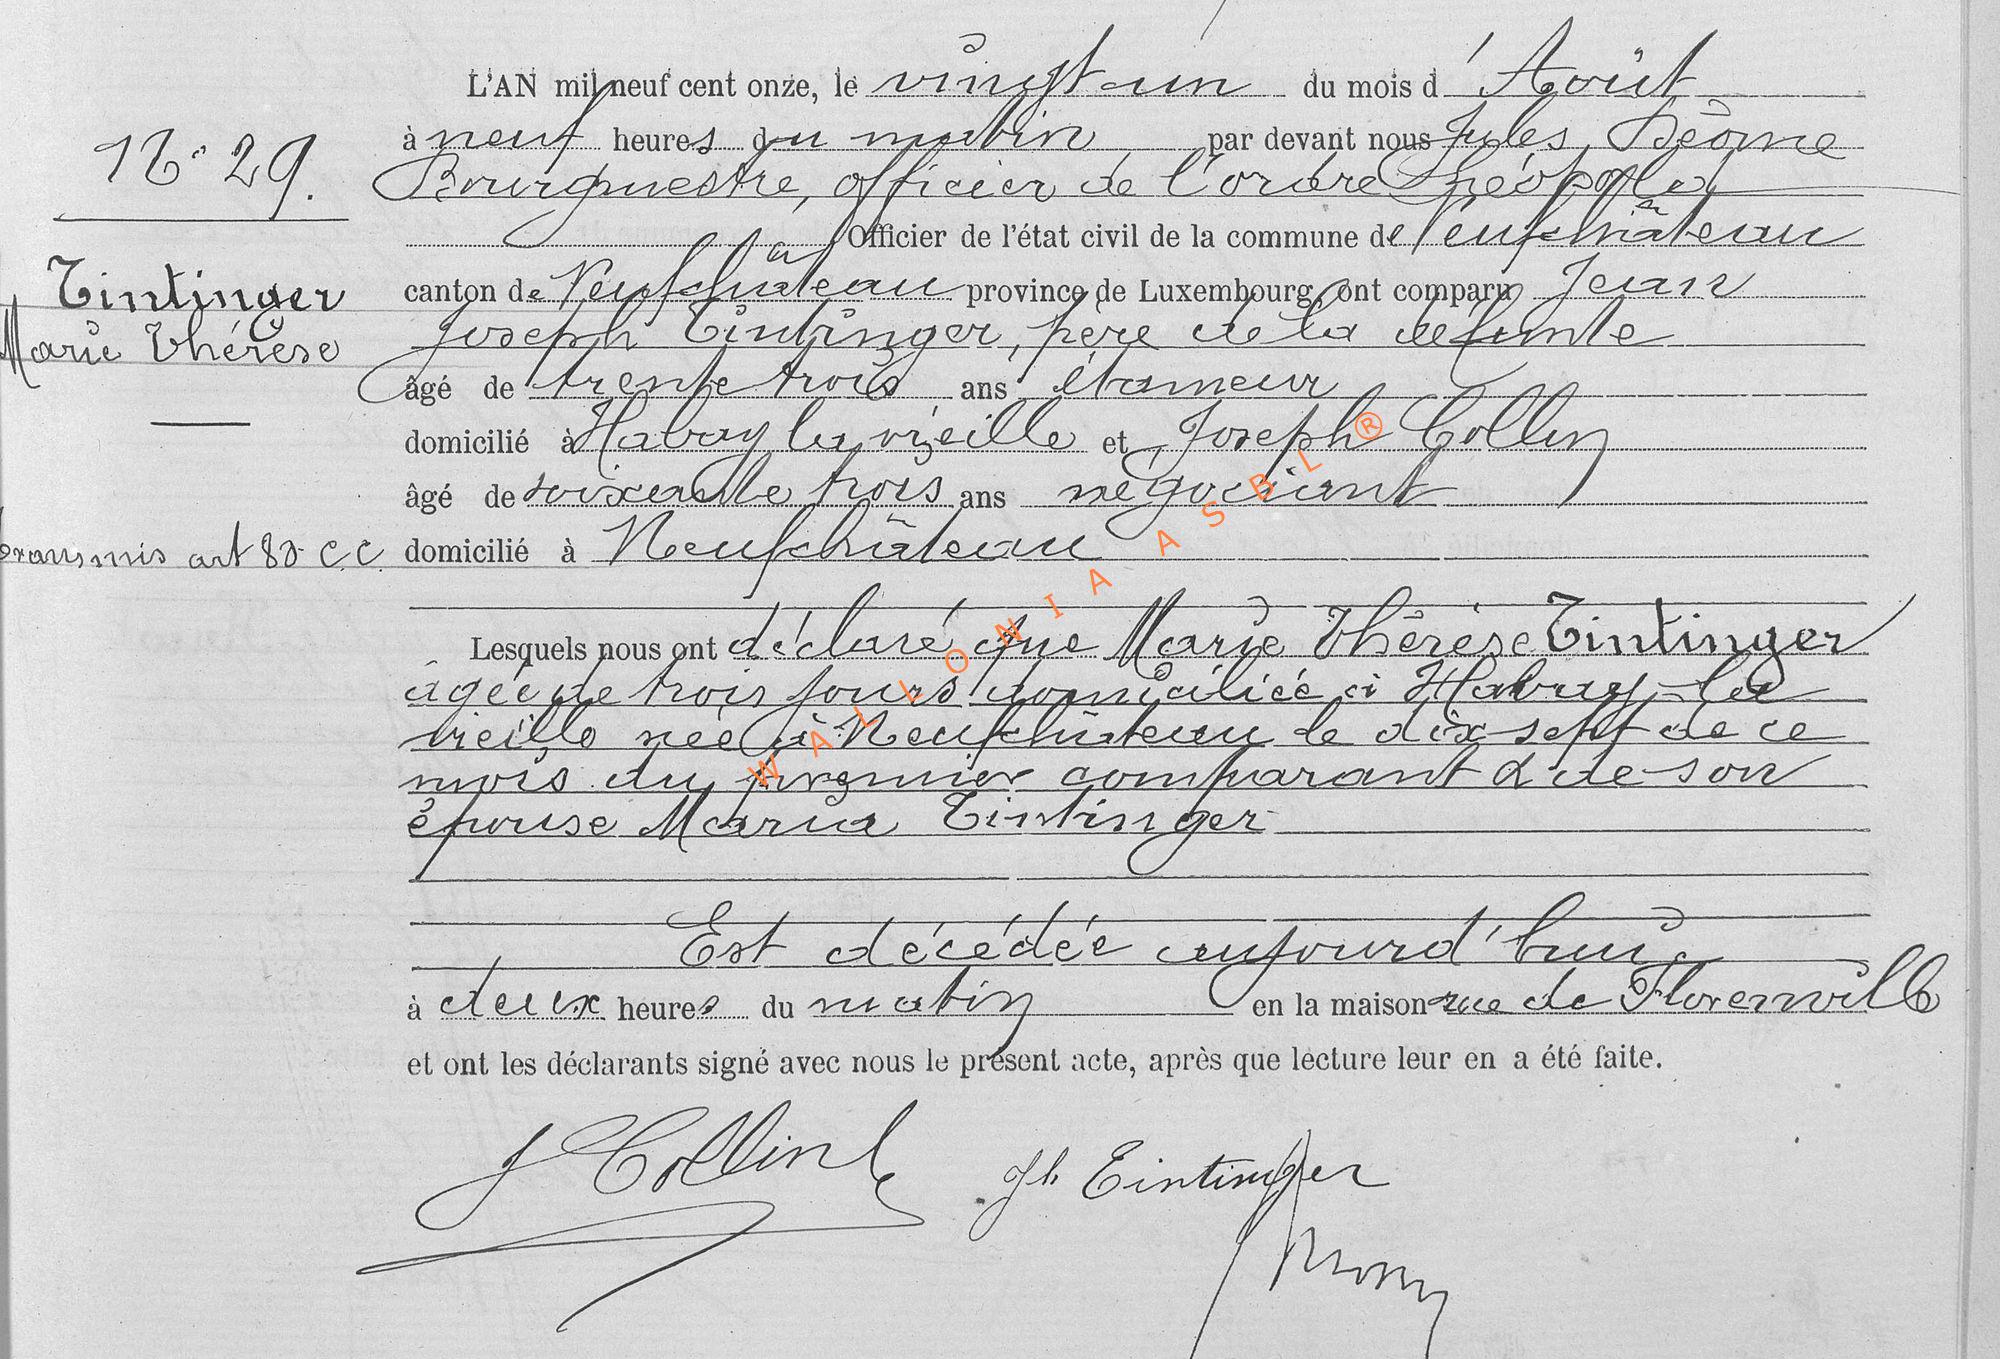 L'AN mil neuf cent onze, le vingt-un du mois d'Août
à neuf heures du matin par devant nous Jules
N° 29.
Bourgmestre, officier de l'ordre Léopold
Officier de l'état civil de la commune de Neufchâteau
Tintinger
canton de Neufchâteau province de Luxembourg, ont comparu Jean
Marie Thérèse
Joseph Tintinger, père de la défunte
âgé de trente trois ans étameur
domicilié à Habay la vieille et Joseph Collin
âgé de soixante trois ans négociant
transmis art 80 C.C.
domicilié à Neufchâteau
Lesquels nous ont déclaré que Marie Thérèse Tintinger
âgée de trois jours domiciliée à Habay-la
vieille née à Neufchâteau le dix-sept de ce
mois du premier comparant & de son
épouse Maria Tintinger
Est décédée aujourd'hui
à deux heures du matin en la maison rue de Florenville
et ont les déclarants signé avec nous le présent acte, après que lecture leur en a été faite.
J Collin Jh Tintinger
WALLONIA ASBL ®